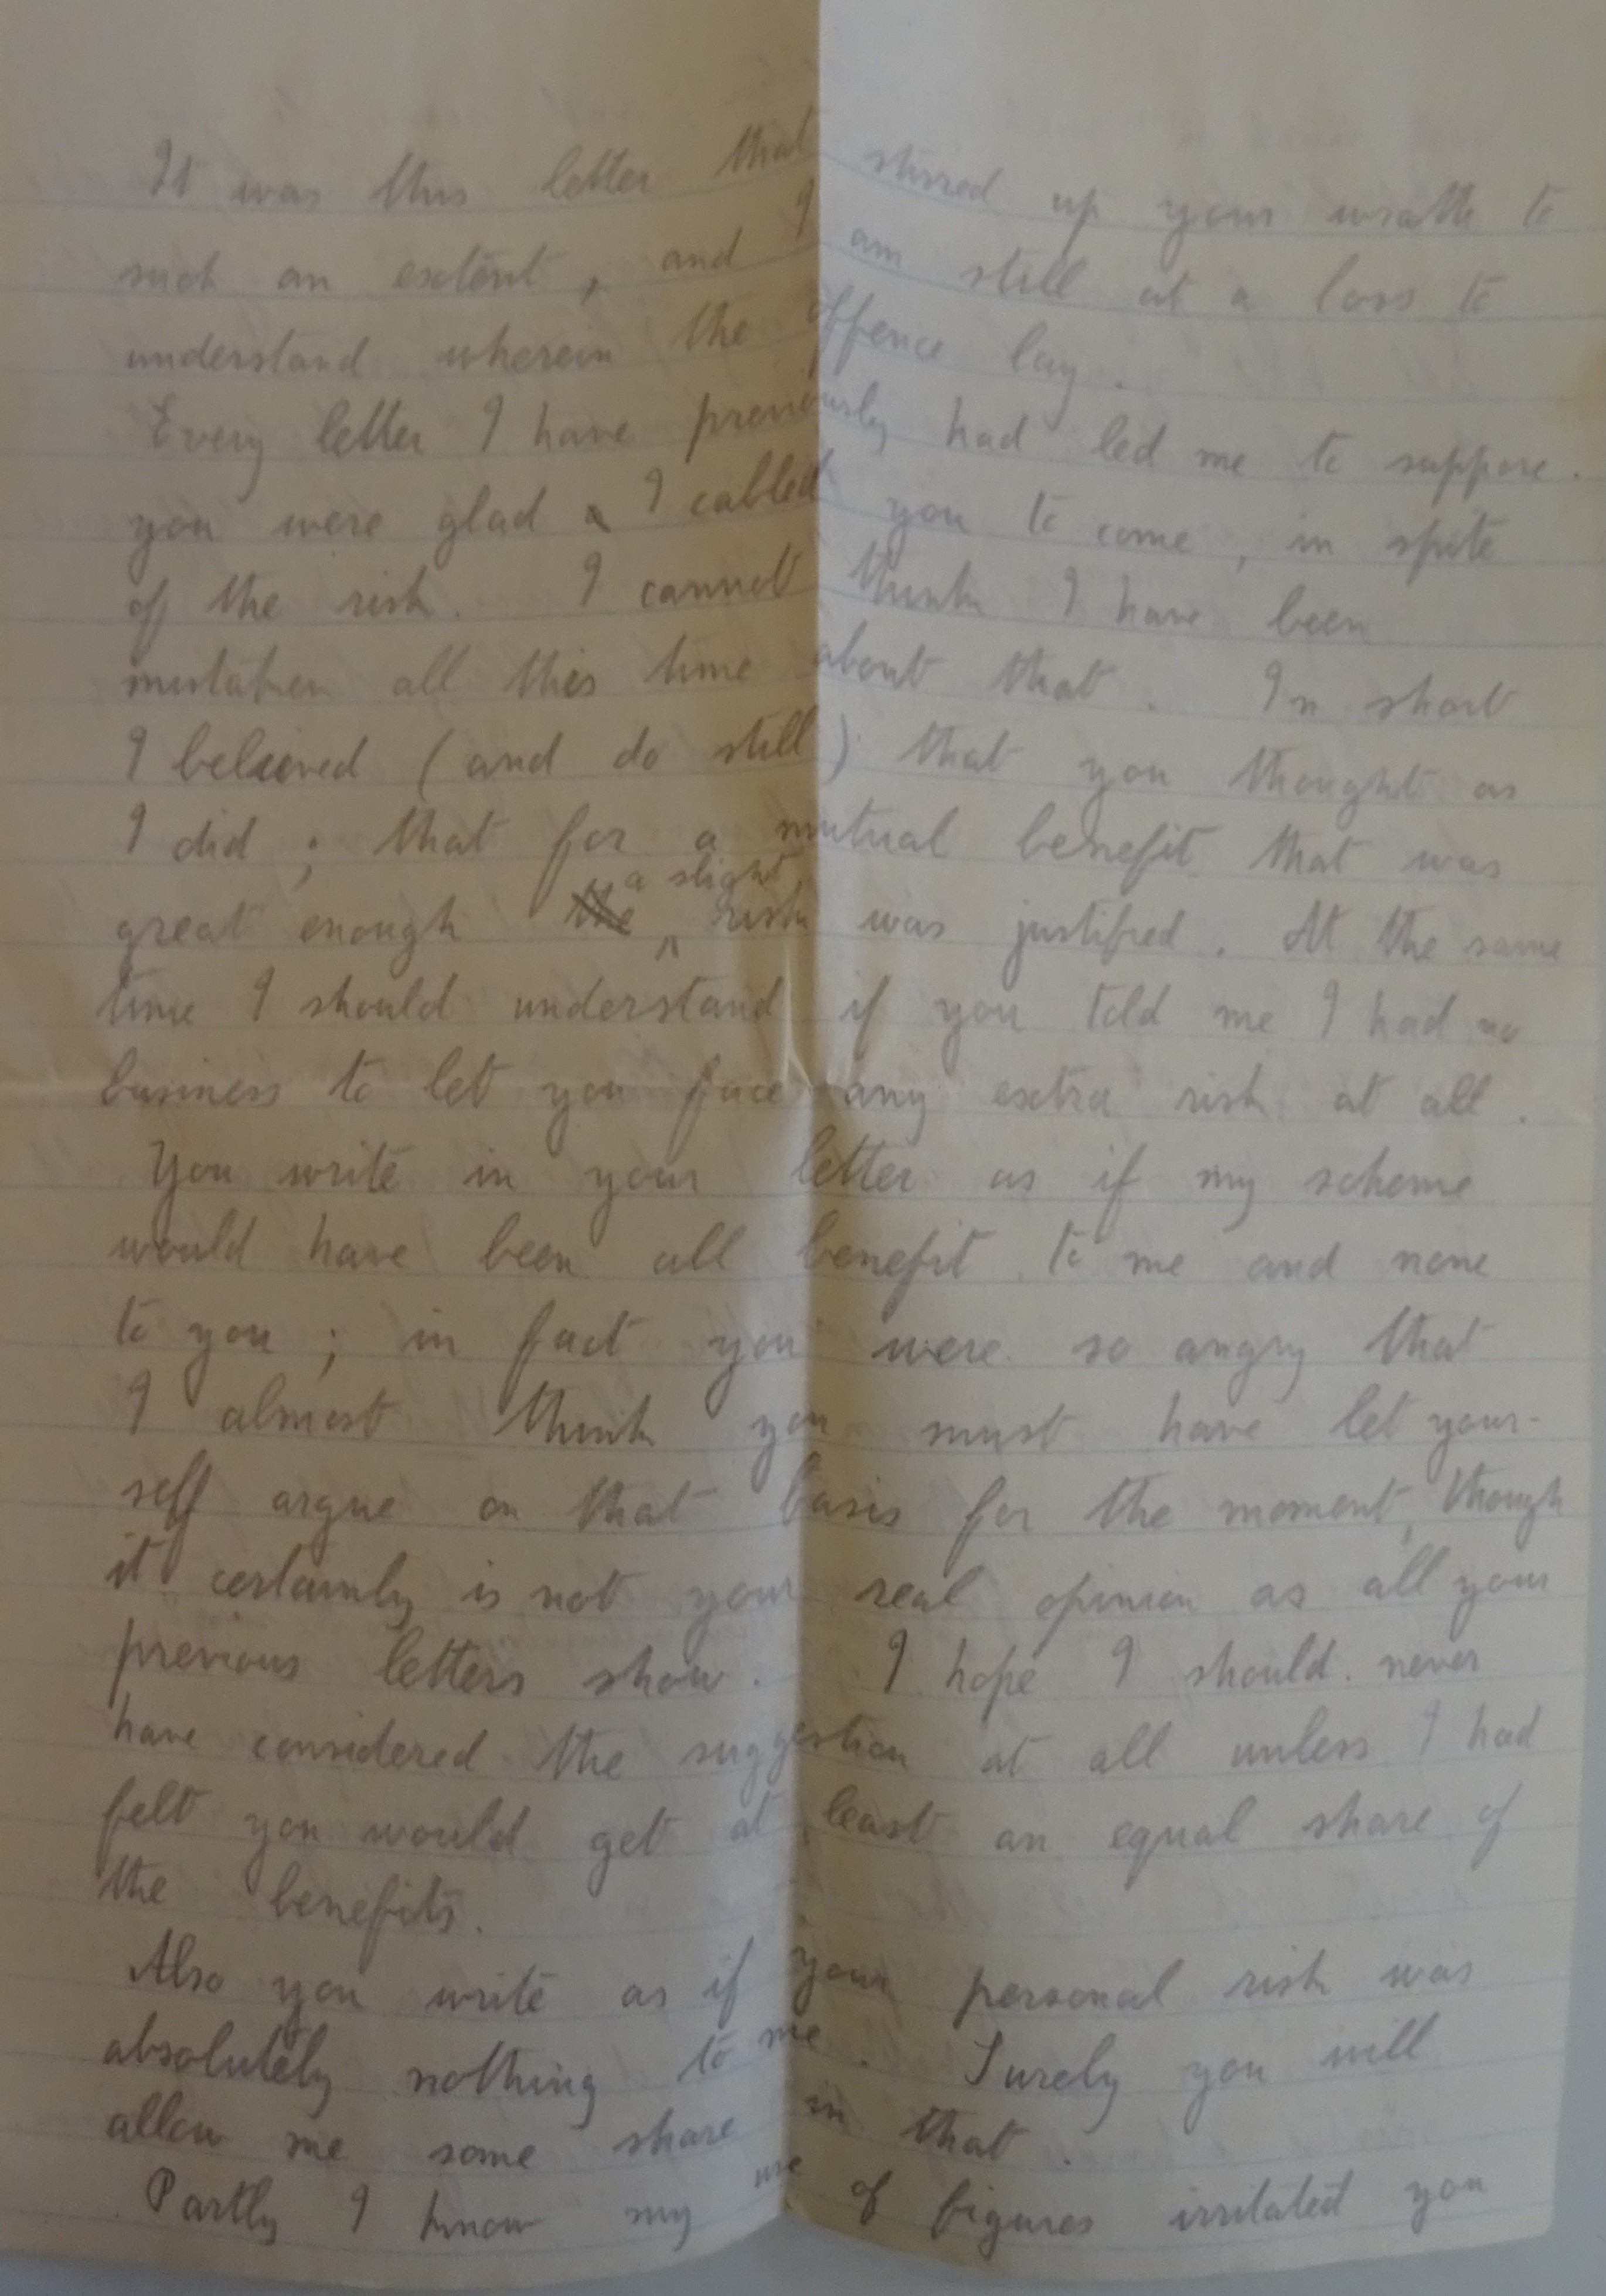 It was this letter that stirred up your wrath to
such an extent, and I am still at a loss to
understand wherein the offence lay.
Every letter I have previously had led me to suppose.
you were glad I cabled you to come, in spite
of the risk. I cannot think I have been
mistaken all this time about that. In short
I believed (and do still) that you thought as
I did; that for a mutual benefit that was
great enough the a slight risk was justified. At the same
time I should understand if you told me I had no
business to let you face any extra risk at all.
You write in your letter as if my scheme
would have been all benefit to me and none
to you; in fact you were so angry that
I almost think you must have let your-
self argue on that basis for the moment, though
it certainly is not your real opinion as all your
previous letters show. I hope I should never
have considered the suggestion at all unless I had
felt you would get at least an equal share of
the benefits.
Also you write as if your personal risk was
absolutely nothing to me. Surely you will
allow me some share in that.
Partly I know my use of figures irritated you